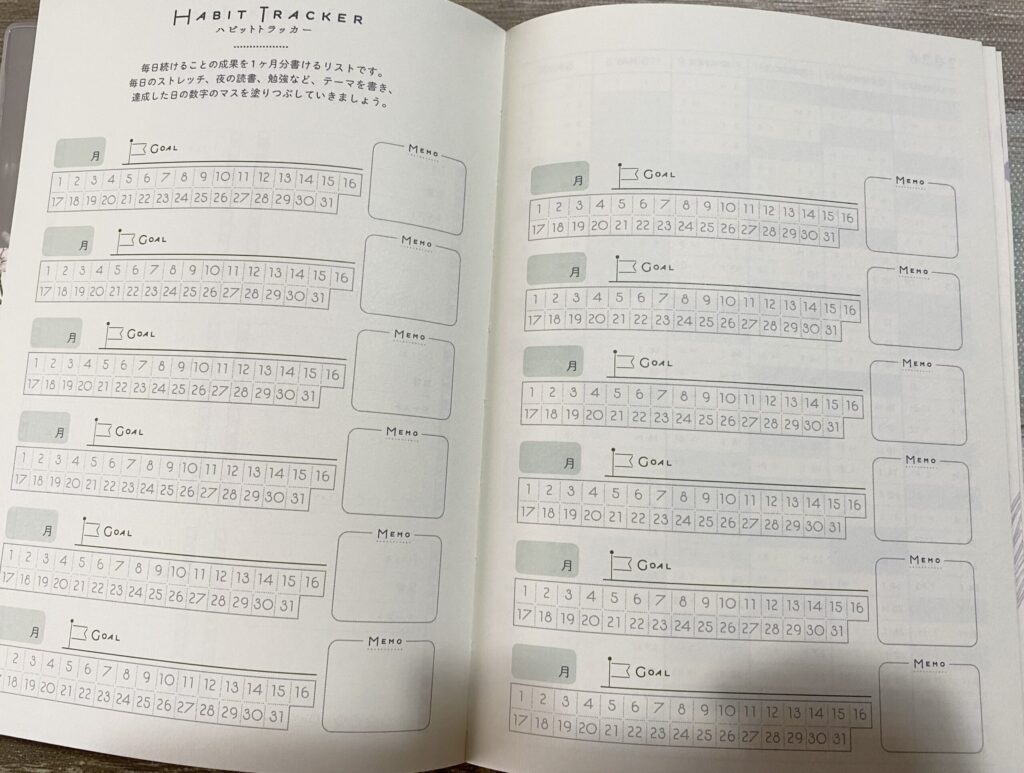 HABIT TRACKER
ハビットトラッカー
毎日続けることの成果を1ヶ月分書けるリストです。
毎日のストレッチ、夜の読書、勉強など、テーマを書き、
達成した日の数字のマスを塗りつぶしていきましょう。
月 GOAL MEMO
1 2 3 4 5 6 7 8 9 10 11 12 13 14 15 16
17 18 19 20 21 22 23 24 25 26 27 28 29 30 31
月 GOAL MEMO
1 2 3 4 5 6 7 8 9 10 11 12 13 14 15 16
17 18 19 20 21 22 23 24 25 26 27 28 29 30 31
月 GOAL MEMO
1 2 3 4 5 6 7 8 9 10 11 12 13 14 15 16
17 18 19 20 21 22 23 24 25 26 27 28 29 30 31
月 GOAL MEMO
1 2 3 4 5 6 7 8 9 10 11 12 13 14 15 16
17 18 19 20 21 22 23 24 25 26 27 28 29 30 31
月 GOAL MEMO
1 2 3 4 5 6 7 8 9 10 11 12 13 14 15 16
17 18 19 20 21 22 23 24 25 26 27 28 29 30 31
月 GOAL MEMO
2 3 4 5 6 7 8 9 10 11 12 13 14 15 16
18 19 20 21 22 23 24 25 26 27 28 29 30 31
月 GOAL MEMO
1 2 3 4 5 6 7 8 9 10 11 12 13 14 15 16
17 18 19 20 21 22 23 24 25 26 27 28 29 30 31
月 GOAL MEMO
1 2 3 4 5 6 7 8 9 10 11 12 13 14 15 16
17 18 19 20 21 22 23 24 25 26 27 28 29 30 31
月 GOAL MEMO
1 2 3 4 5 6 7 8 9 10 11 12 13 14 15 16
17 18 19 20 21 22 23 24 25 26 27 28 29 30 31
月 GOAL MEMO
1 2 3 4 5 6 7 8 9 10 11 12 13 14 15 16
17 18 19 20 21 22 23 24 25 26 27 28 29 30 31
月 GOAL MEMO
1 2 3 4 5 6 7 8 9 10 11 12 13 14 15 16
17 18 19 20 21 22 23 24 25 26 27 28 29 30 31
月 GOAL MEMO
1 2 3 4 5 6 7 8 9 10 11 12 13 14 15 16
17 18 19 20 21 22 23 24 25 26 27 28 29 30 31